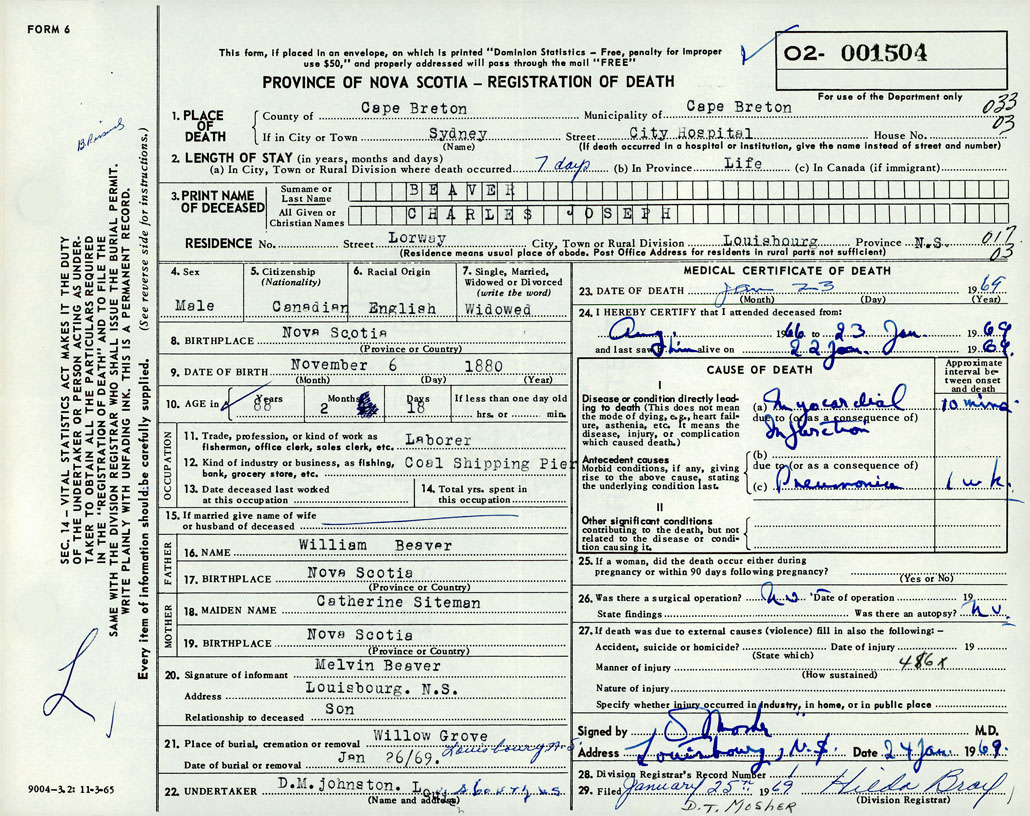 FORM 6
This form, if placed in an envelope, on which is printed "Dominion Statistics – Free, penalty for improper
use $50," and properly addressed will pass through the mail "FREE"
O2- 001504
For use of the Department only
PROVINCE OF NOVA SCOTIA – REGISTRATION OF DEATH
033
03
1. PLACE OF DEATH
County of Cape Breton Municipality of Cape Breton
If in City or Town Sydney Street City Hospital House No.
(Name) (If death occurred in a hospital or institution, give the name instead of street and number)
2. LENGTH OF STAY (in years, months and days)
(a) In City, Town or Rural Division where death occurred 7 days (b) In Province Life (c) In Canada (if immigrant)
3. PRINT NAME OF DECEASED
Surname or Last Name BEAVER
All Given or Christian Names CHARLES JOSEPH
RESIDENCE No. Street Lorway City, Town or Rural Division Louisbourg Province N.S. 017
03
(Residence means usual place of abode. Post Office Address for residents in rural parts not sufficient)
4. Sex
Male
5. Citizenship
(Nationality)
Canadian
6. Racial Origin
English
7. Single, Married,
Widowed or Divorced
(write the word)
Widowed
8. BIRTHPLACE Nova Scotia
(Province or Country)
9. DATE OF BIRTH November 6 1880
(Month) (Day) (Year)
10. AGE in Years Months Days If less than one day old
88 2 18 hrs. or min.
OCCUPATION
11. Trade, profession, or kind of work as
fisherman, office clerk, sales clerk, etc. Laborer
12. Kind of industry or business, as fishing, Coal Shipping Pier
bank, grocery store, etc.
13. Date deceased last worked
at this occupation
14. Total yrs. spent in
this occupation
15. If married give name of wife
or husband of deceased
FATHER
16. NAME William Beaver
17. BIRTHPLACE Nova Scotia
(Province or Country)
MOTHER
18. MAIDEN NAME Catherine Siteman
19. BIRTHPLACE Nova Scotia
(Province or Country)
20. Signature of informant Melvin Beaver
Address Louisbourg. N.S.
Relationship to deceased Son
21. Place of burial, cremation or removal Willow Grove
Louisbourg N.S.
Date of burial or removal Jan 26/69.
22. UNDERTAKER D.M.johnston.
(Name and address)
MEDICAL CERTIFICATE OF DEATH
23. DATE OF DEATH Jan 23 1969
(Month) (Day) (Year)
24. I HEREBY CERTIFY that I attended deceased from:
Aug. 1966 to 23 Jan. 1969
and last saw him alive on 22 Jan. 1969.
CAUSE OF DEATH
Approximate
interval between
onset
and death
I
Disease or condition directly leading
to death (This does not mean
the mode of dying, e.g., heart failure,
asthenia, etc. It means the
disease, injury, or complication
which caused death.)
(a) Myocardial 10 mins
due to (or as a consequence of)
Infarction
Antecedent causes
Morbid conditions, if any, giving
rise to the above cause, stating
the underlying condition last.
(b)
due to (or as a consequence of)
(c) Pneumonia 1 wk.
II
Other significant conditions
contributing to the death, but not
related to the disease or condition
causing it.
25. If a woman, did the death occur either during
pregnancy or within 90 days following pregnancy?
(Yes or No)
26. Was there a surgical operation? No Date of operation 19
State findings Was there an autopsy? No
27. If death was due to external causes (violence) fill in also the following: –
Accident, suicide or homicide? Date of injury 19
(State which)
Manner of injury 486x
(How sustained)
Nature of injury
Specify whether injury occurred in industry, in home, or in public place
Signed by S Mosher M.D.
Address Louisbourg, N.S. Date 24 Jan. 1969.
28. Division Registrar's Record Number 1
29. Filed January 25th 1969 Hilda Bray
(Division Registrar)
D.T. MOSHER
SEC. 14 – VITAL STATISTICS ACT MAKES IT THE DUTY
OF THE UNDERTAKER OR PERSON ACTING AS UNDERTAKER
TO OBTAIN ALL THE PARTICULARS REQUIRED
IN THE "REGISTRATION OF DEATH" AND TO FILE THE
SAME WITH THE DIVISION REGISTRAR WHO SHALL ISSUE THE BURIAL PERMIT.
WRITE PLAINLY WITH UNFADING INK. THIS IS A PERMANENT RECORD.
Every item of information should be carefully supplied. (See reverse side for instructions.)
9004–3.2: 11-3-65